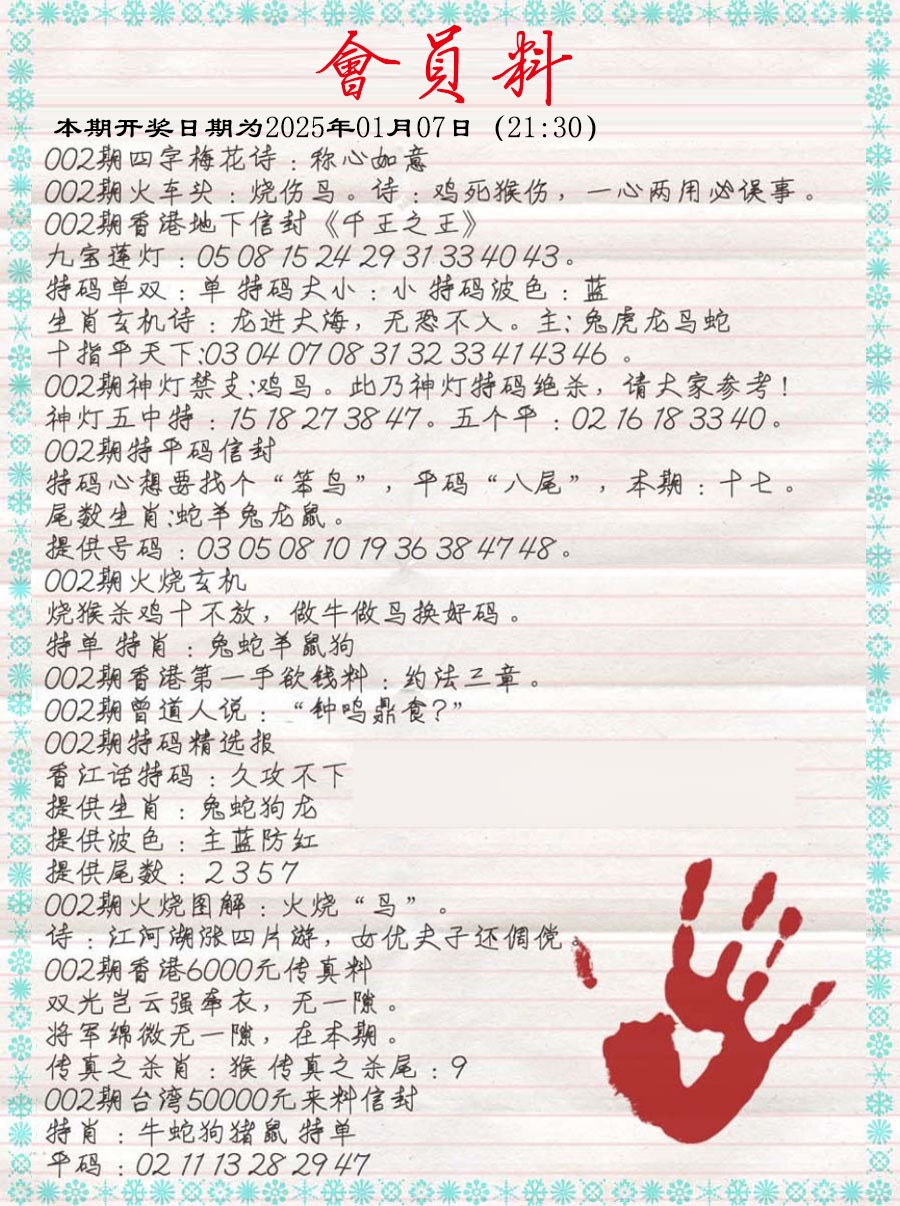 會員料
本期开奖日期为2025年01月07日（21:30）
002期四字梅花诗：称心如意
002期火车头：烧伤鸟。诗：鸡死猴伤，一心两用必误事。
002期香港地下信封《千王之王》
九宝莲灯：05 08 15 24 29 31 33 40 43。
特码单双：单 特码大小：小 特码波色：蓝
生肖玄机诗：龙进大海，无恐不入。主:兔虎龙鸟蛇
十指平天下:03 04 07 08 31 32 33 41 43 46 。
002期神灯禁支:鸡鸟。此乃神灯特码绝杀，请大家参考！
神灯五中特：15 18 27 38 47。五个平：02 16 18 33 40。
002期特平码信封
特码心想要找个“笨鸟”，平码“八尾”，本期：十七。
尾数生肖:蛇羊兔龙鼠。
提供号码：03 05 08 10 19 36 38 47 48。
002期火烧玄机
烧猴杀鸡十不放，做牛做鸟换好码。
特单 特肖：兔蛇羊鼠狗
002期香港第一手欲钱料：约法三章。
002期曾道人说：“钟鸣鼎食?”
002期特码精选报
香江话特码：久攻不下
提供生肖：兔蛇狗龙
提供波色：主蓝防红
提供尾数：2 3 5 7
002期火烧图解：火烧“鸟”。
诗：江河湖涨四片游，女优夫子还倜傥。
002期香港6000元传真料
双光岂云强牵衣，无一隙。
将军绵微无一隙，在本期。
传真之杀肖：猴 传真之杀尾：9
002期台湾50000元来料信封
特肖：牛蛇狗猪鼠 特单
平码：02 11 13 28 29 47